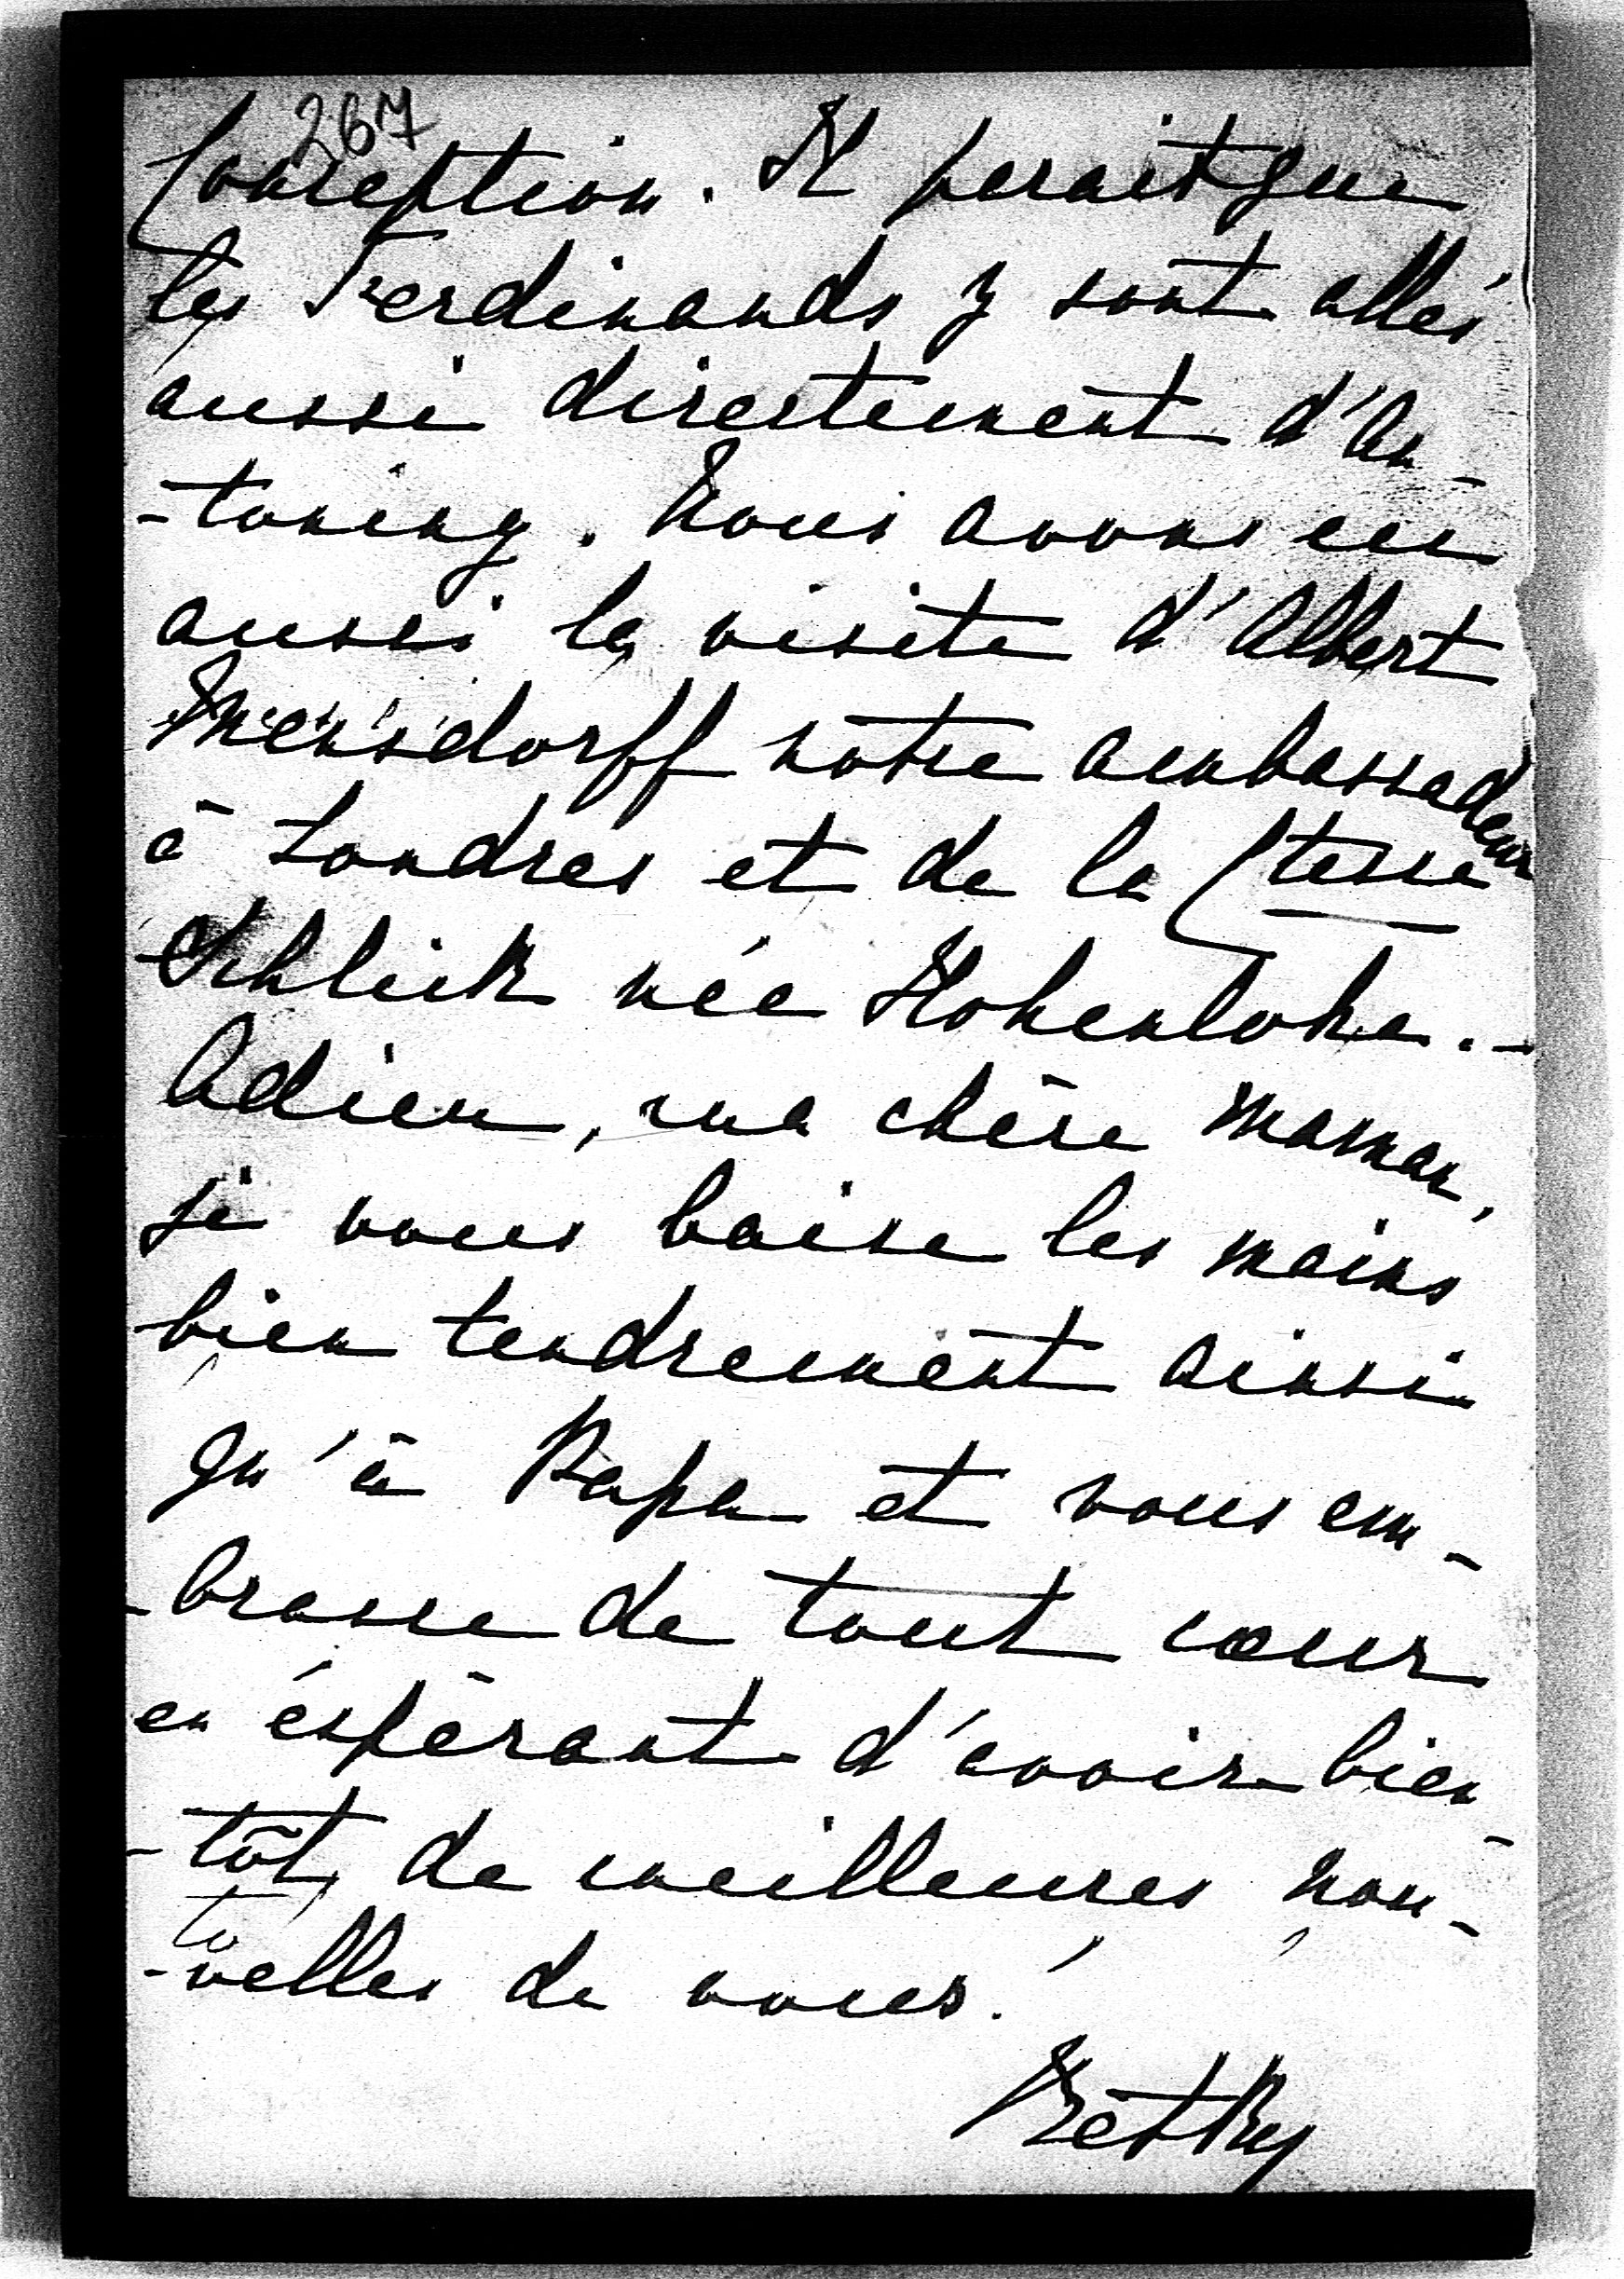 267
Conception. Il parait que
les Ferdinands y sont allés
aussi directement d'An-
-toniny. Nous avons eu
aussi la visite d'Albert
Mensdorff nôtre ambassadeur
à Londres et de la Ctesse
Schlick née Hohenlohe. -
Adieu, ma chère maman,
je vous baise les mains
bien tendrement ainsi
qu'à Papa et vous em-
-brasse de tout coeur
en éspérant d'avoir bien-
-tôt de meilleures nou-
-velles de vous!
Betty